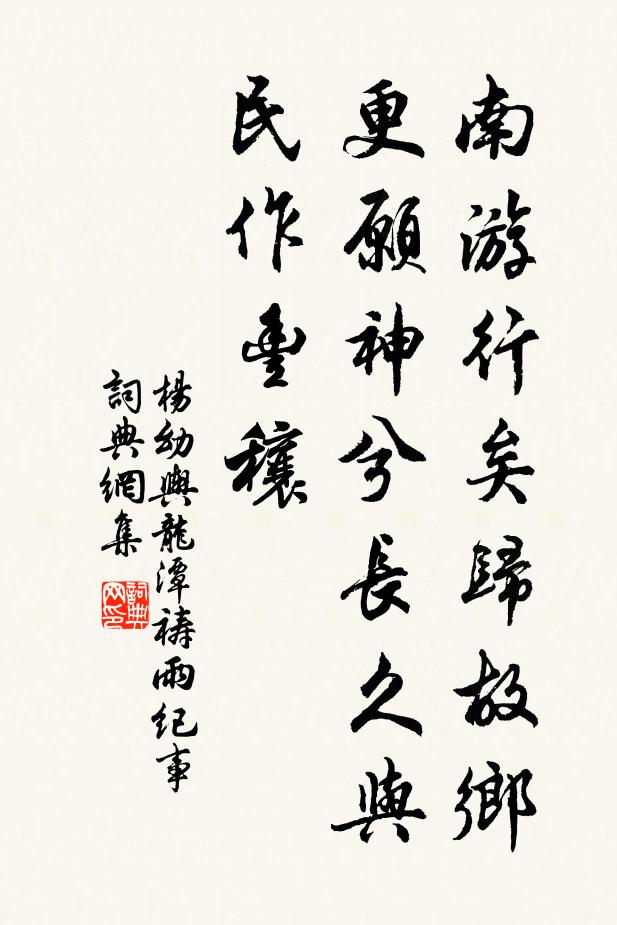 南游行矣歸故鄉
更願神兮長久與
民作豊穰
楊幼輿龍潭禱雨紀事
詞典網集
詞典网印